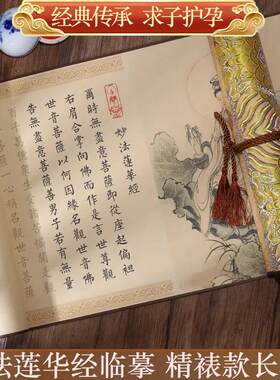 经典传承 求子护孕
妙法蓮華經
爾時無盡意菩薩即從座起偏袒
右肩合掌向佛而作是言世尊觀
世音菩薩以何因緣名觀世音佛
告無盡意菩薩善男子若有無量
一心稱名觀世音菩
法莲华经临摹 精裱款长